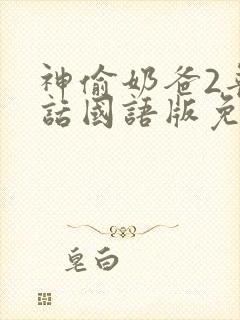 神偷奶爸2普
話國語版免
皂白